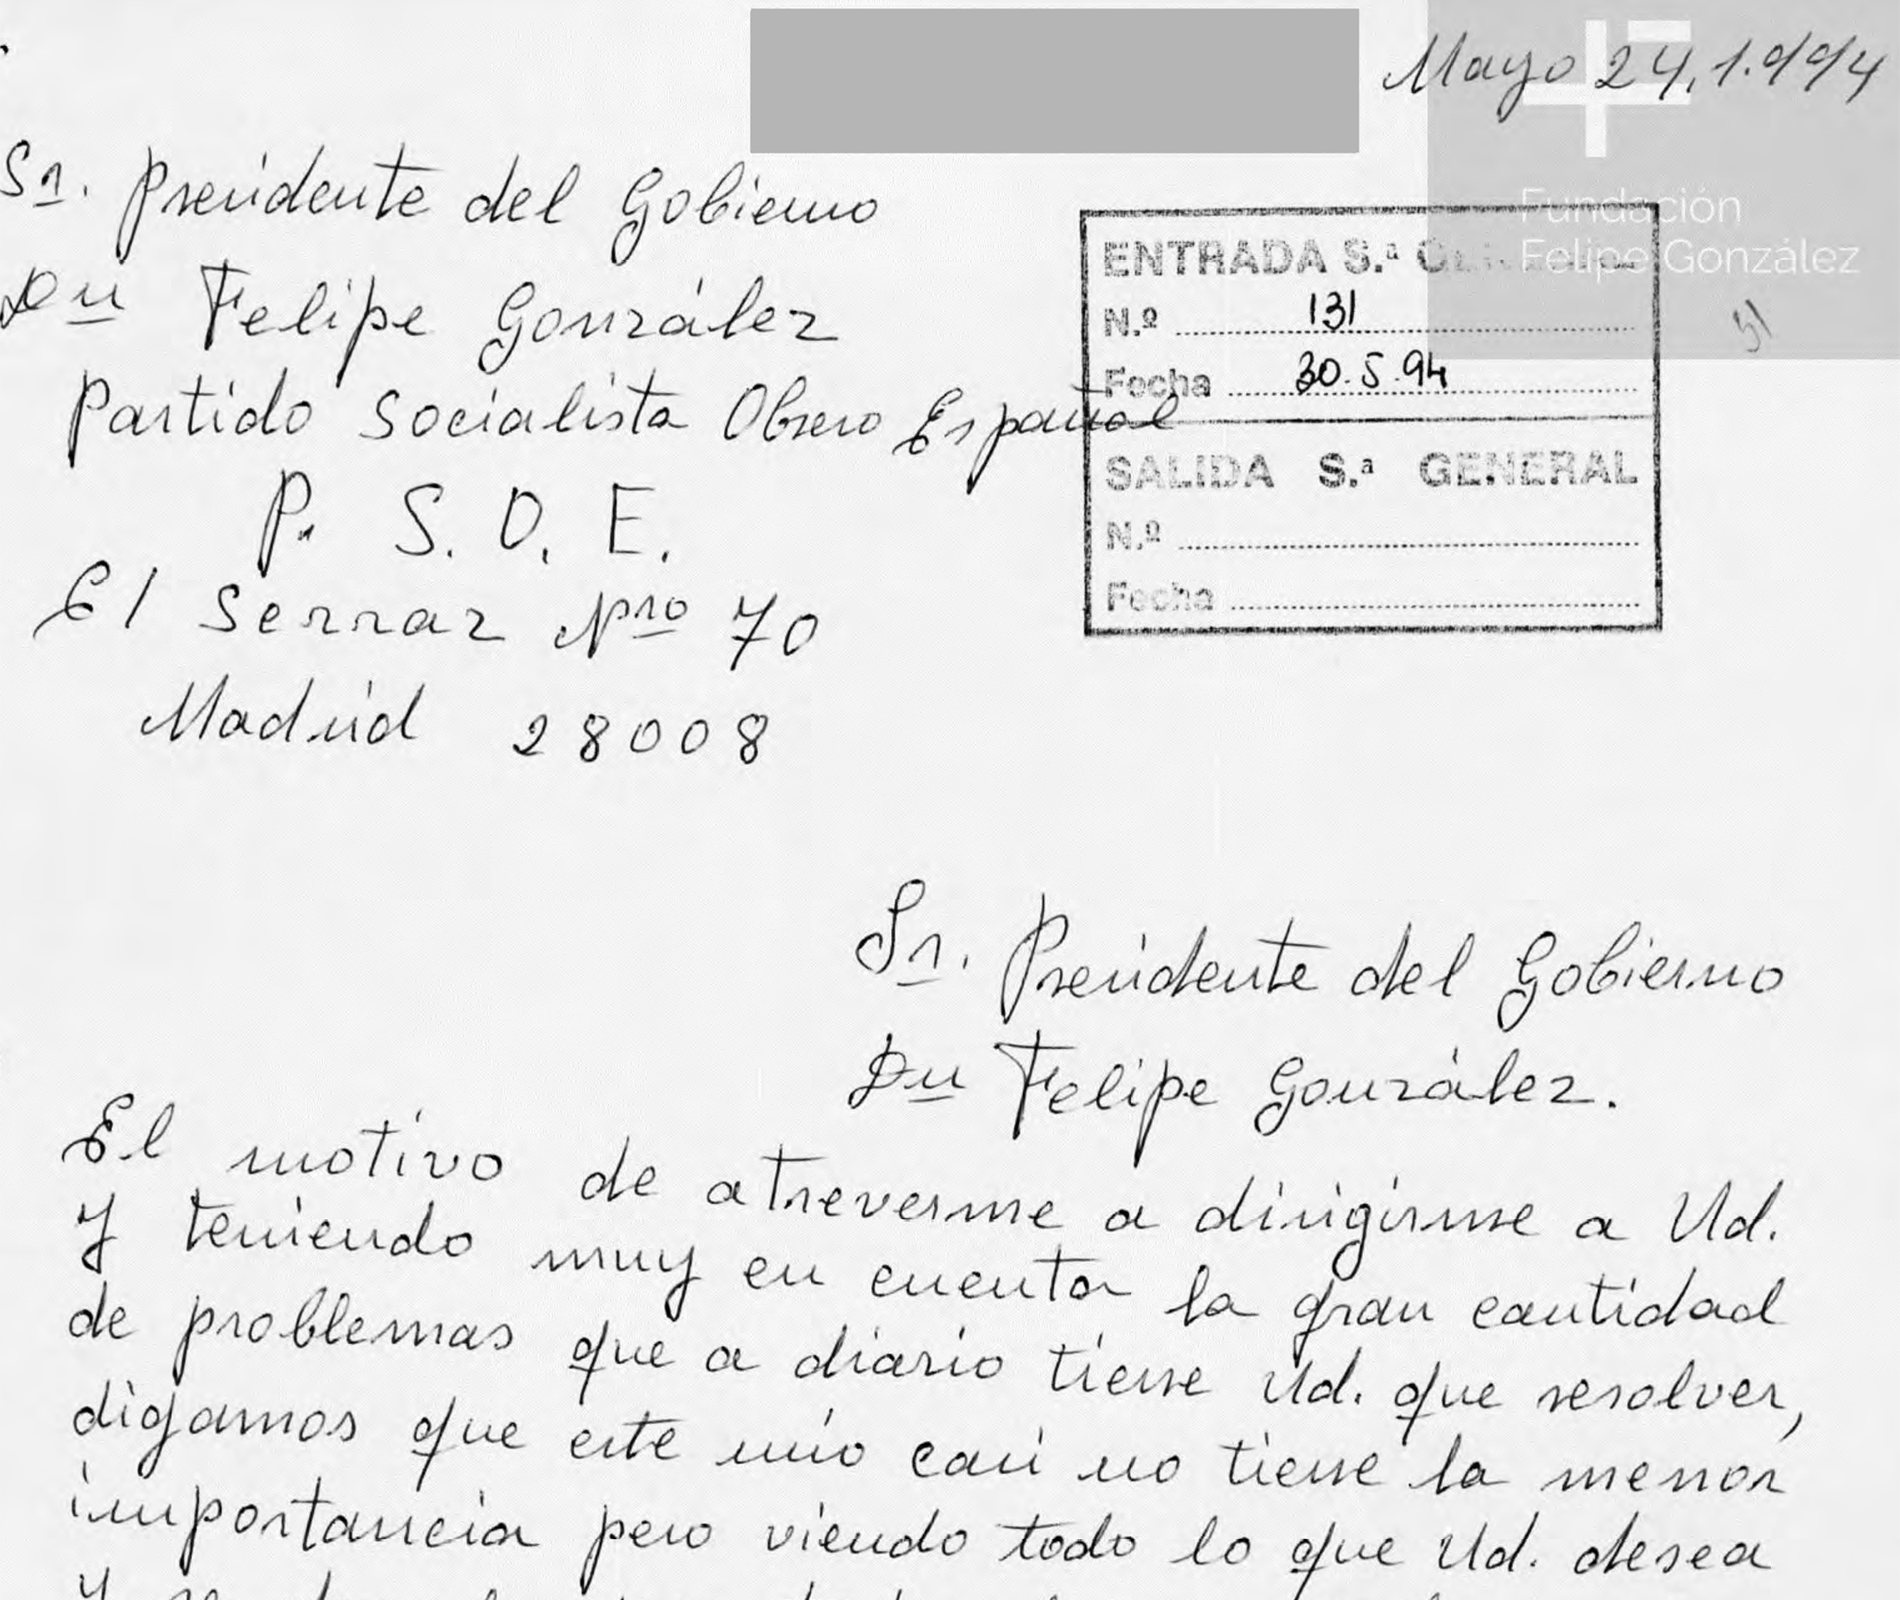 Mayo 24, 1.994
Sr. Presidente del Gobierno
Dn Felipe González
Partido Socialista Obrero Español
P. S. O. E.
El Serraz Nro 70
Madrid 28008
Fundación
Felipe González
ENTRADA S.ª
N.º 131
Fecha 30.5.94
SALIDA S.ª GENERAL
N.º
Fecha
Sr. Presidente del Gobierno
Dn Felipe González.
El motivo de atreverme a dirigirme a Ud.
Y teniendo muy en cuenta la gran cantidad
de problemas que a diario tiene Ud. que resolver,
digamos que este mío casi no tiene la menor
importancia pero viendo todo lo que Ud. desea